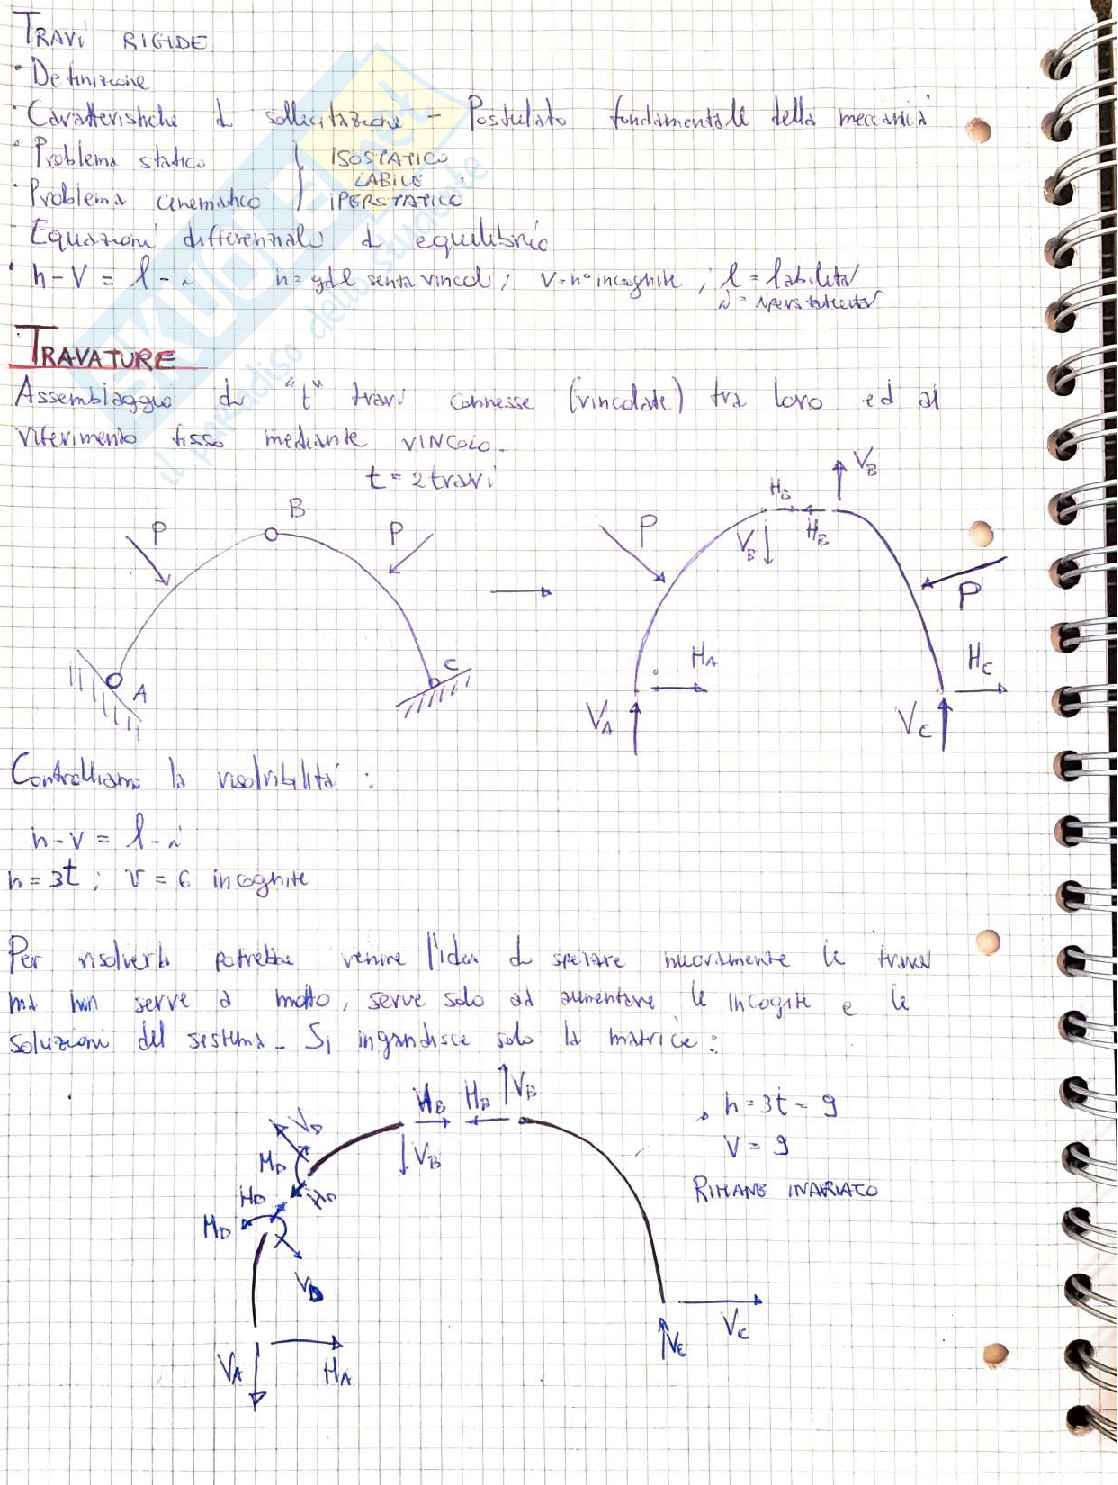 TRAVI RIGIDE
· Definizione
· Caratteristiche di sollecitazione - Postulato fondamentale della meccanica
· Problema statico
· Problema cinematico
ISOSTATICO
LABILE
IPERSTATICO
· Equazioni differenziali di equilibrio
· n-V = l-i n = gdl senza vincoli; V = n° incognite; l = labilità
i = iperstaticità
TRAVATURE
Assemblaggio di "t" travi connesse (vincolate) tra loro ed al
riferimento fisso mediante VINCOLO.
t = 2 travi
P B P
A C
P VB HB HB VB P
HA HC
VA VC
Controlliamo la risolvibilità:
n-v = l-i
n = 3t ; V = 6 incognite
Per risolverla potrebbe venire l'idea di spezzare nuovamente le travi
ma non serve a molto, serve solo ad aumentare le incognite e le
soluzioni del sistema. Si ingrandisce solo la matrice:
HB HB VB
VD VB
MD HD
HD
MD
VD
n = 3t = 9
V = 9
RIMANE INVARIATO
VC
VC
VA HA
skuola.net
il paradiso dello studente